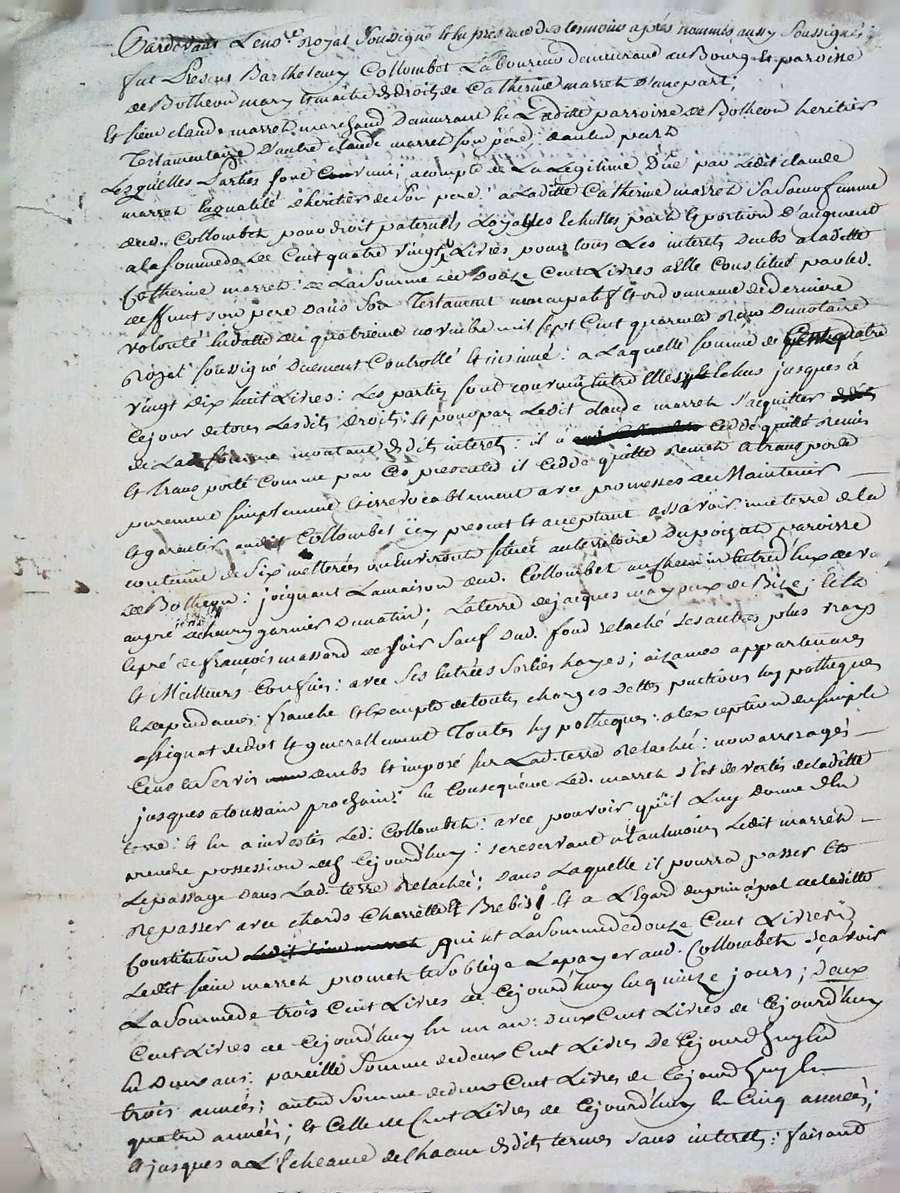 Pardevant Le no.re Royal Soussigné & En presence des temoins après nommés aussy soussignés;
fut Present Barthelemy Collombet Laboureur demeurant au Bourg & paroisse
de Botheon mary & maitre des Droits de Catherine marret D'une part;
Et sieur claude marret marchand demeurant En Laditte parroisse de Botheon heritier
Testamentaire D'autre claude marret son pere; d'autre part
Lesquelles Parties font à compte de La Legitime Düe par Ledit claude
marret En qualité d'heritier de Son pere a Laditte Catherine marret Sa Soeur femme
dud. Collombet pour droit paternels Loyalles Echuttes part & portion D'augment
a la Somme de Cent quatre vingt Livres pour tous Les interets Deubs a Laditte
Catherine marret: de La Somme de Douze Cent Livres a Elle Constitué par led.
deffunt son pere Dans Son Testament nuncupatif & ordonnance de Derniere
volonté En datte du quatrieme novembre mil sept Cent quarente Reçu Du notaire
Royal soussigné Duement Controllé & insinué: a Laquelle somme de quatre
vingt Dix huit Livres: Les parties sont convenu Entre Elles jusques à
Cejour de tous Lesdits Droits: & pour par Ledit claude marret S'acquitter
de La Somme montant desdits interets: il a Ceddé quitté Remis
& Transporté Comme par Ces presentes il Cedde quitte Remet & transporte
purement simplement & irrevocablement avec promesses de Maintenir
& garentir audit Collombet icy present & acceptant assavoir une terre de la
contenue de Six metterées ou Environt scituée au territoire Du poizat paroisse
de Botheon: joignant La maison dud. Collombet un Chemin Entre d'Eux de
degré de fleury garnier Du matin; La terre de jacques mayoux de Bize; &
Le pré de françois massard de soir Sauf Dud. fond relaché Ses autres plus vrays
& Meilleurs Confins: avec Ses Entrées Sorties hayes; aizances appartenances
& dependances: franche & Exempte de toutes charges dettes pactions hypotheques
assignat de dot & generallement Toutes hypotheques: a l'exception du simple
Cens En Servis Deubs & imposé Sur Lad. terre Relachée: non arreragés
jusques a toussain prochain: En Consequence Led. marret s'est devetis de laditte
terre: & En a investis Led. Collombet: avec pouvoir qu'il Luy donne d'En
prendre possession des Cejourd'huy: se reservant neaulmoins Ledit marret
Le passage Dans Lad. terre Relachée; dans Laquelle il pourra passer Et
Repasser avec chards Charrettes & Brebis: & a L'Egard du principal de laditte
Constitution qui Est La Somme de douze Cent Livres:
Ledit sieur marret promet & S'oblige La payer aud. Collombet: Scavoir
La Somme de trois Cent Livres de Cejourd'huy En quinze jours; deux
Cent Livres de Cejourd'huy En un an: deux Cent Livres de Cejourd'huy
En Deux ans: pareille Somme de deux Cent Livres De Cejourd'huy En
trois années; autre Somme de deux Cent Livres de Cejourd'huy En
quatre années; & Celle de Cent Livres de Cejourd'huy En Cinq années;
& jusques a L'Echeance de chacun desdits termes Sans interets: faisant